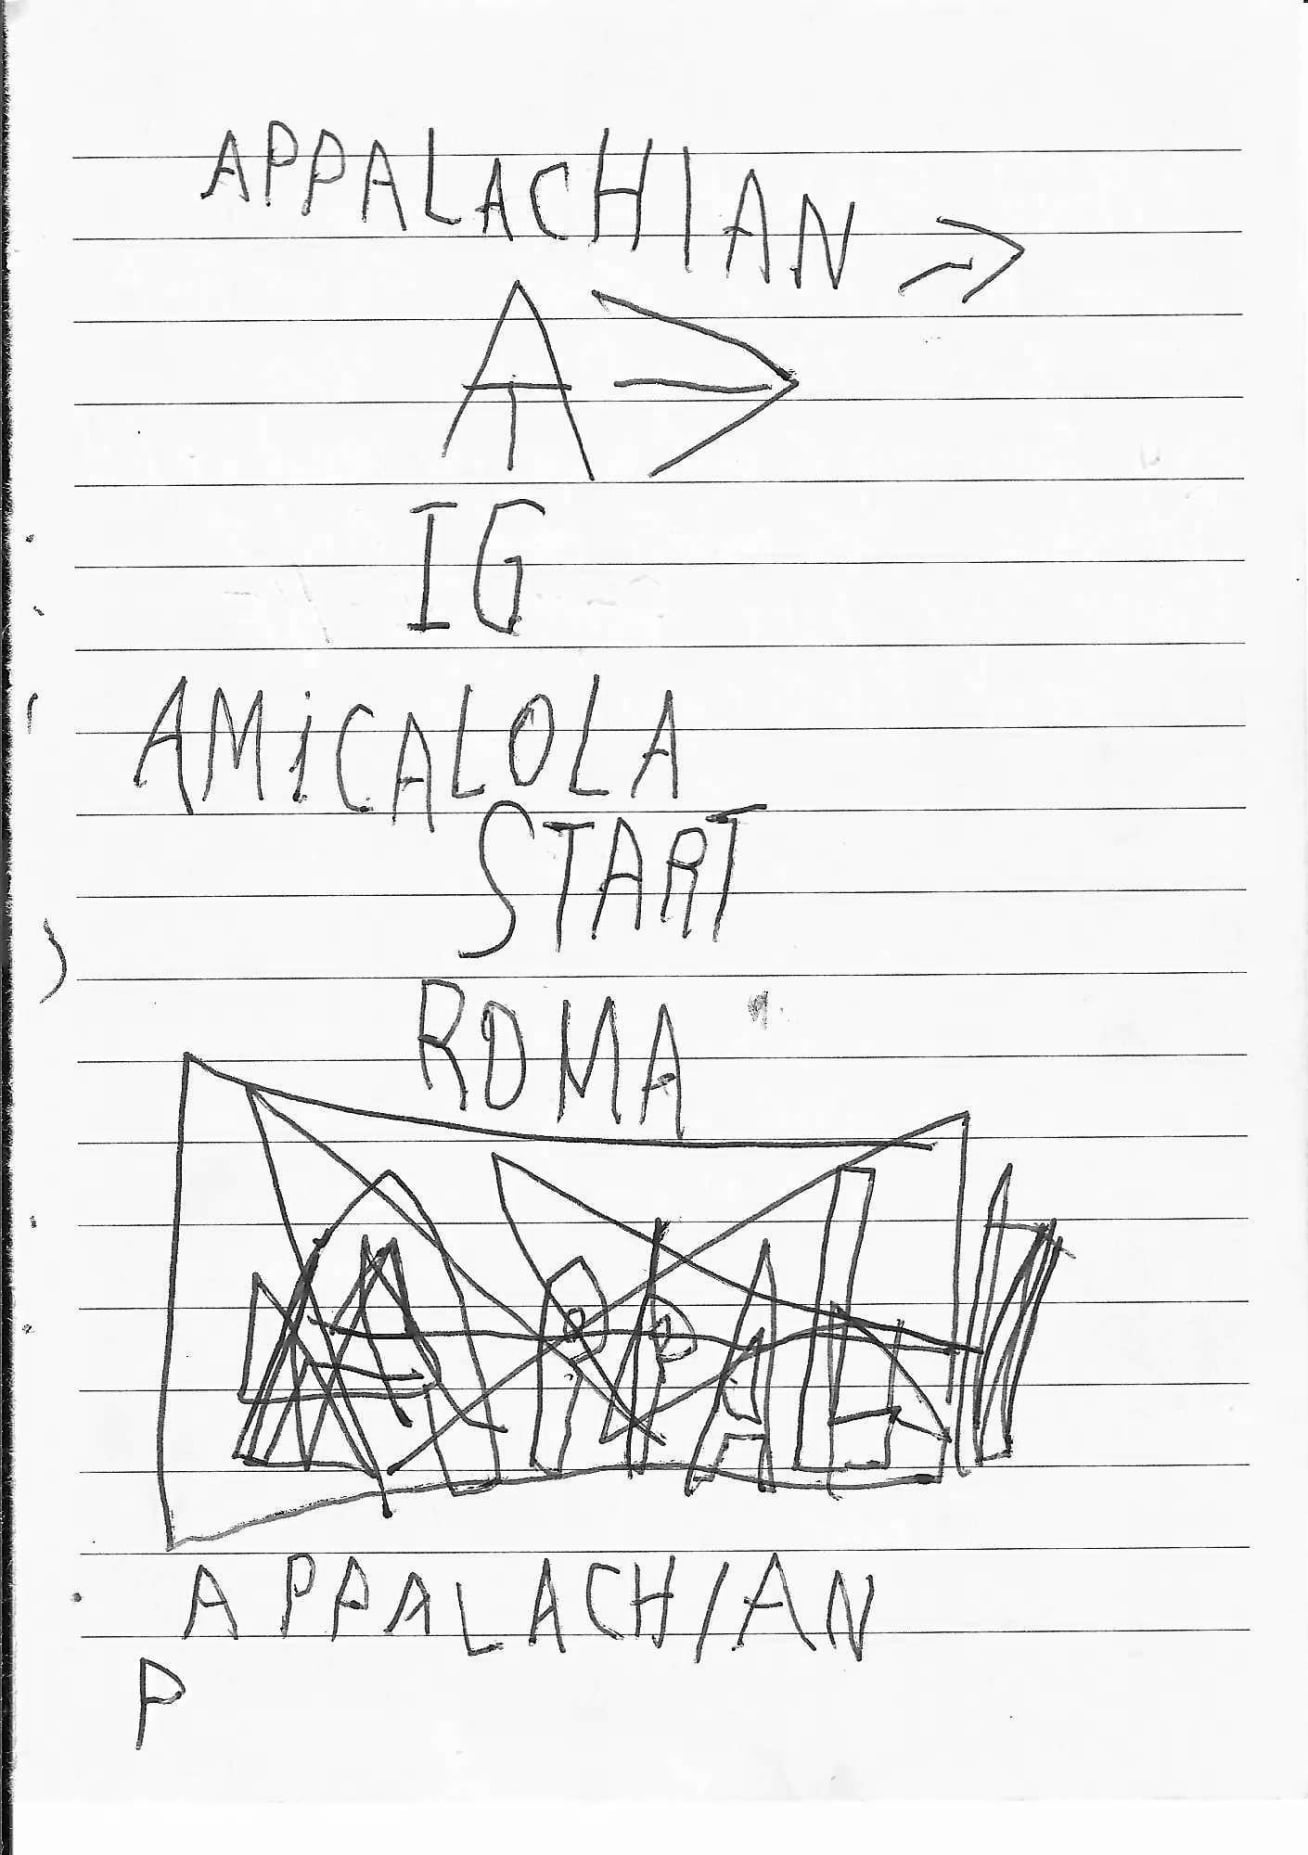 APPALACHIAN →
AT
IG
AMiCALOLA
START
ROMA
APPALACHIAN
P